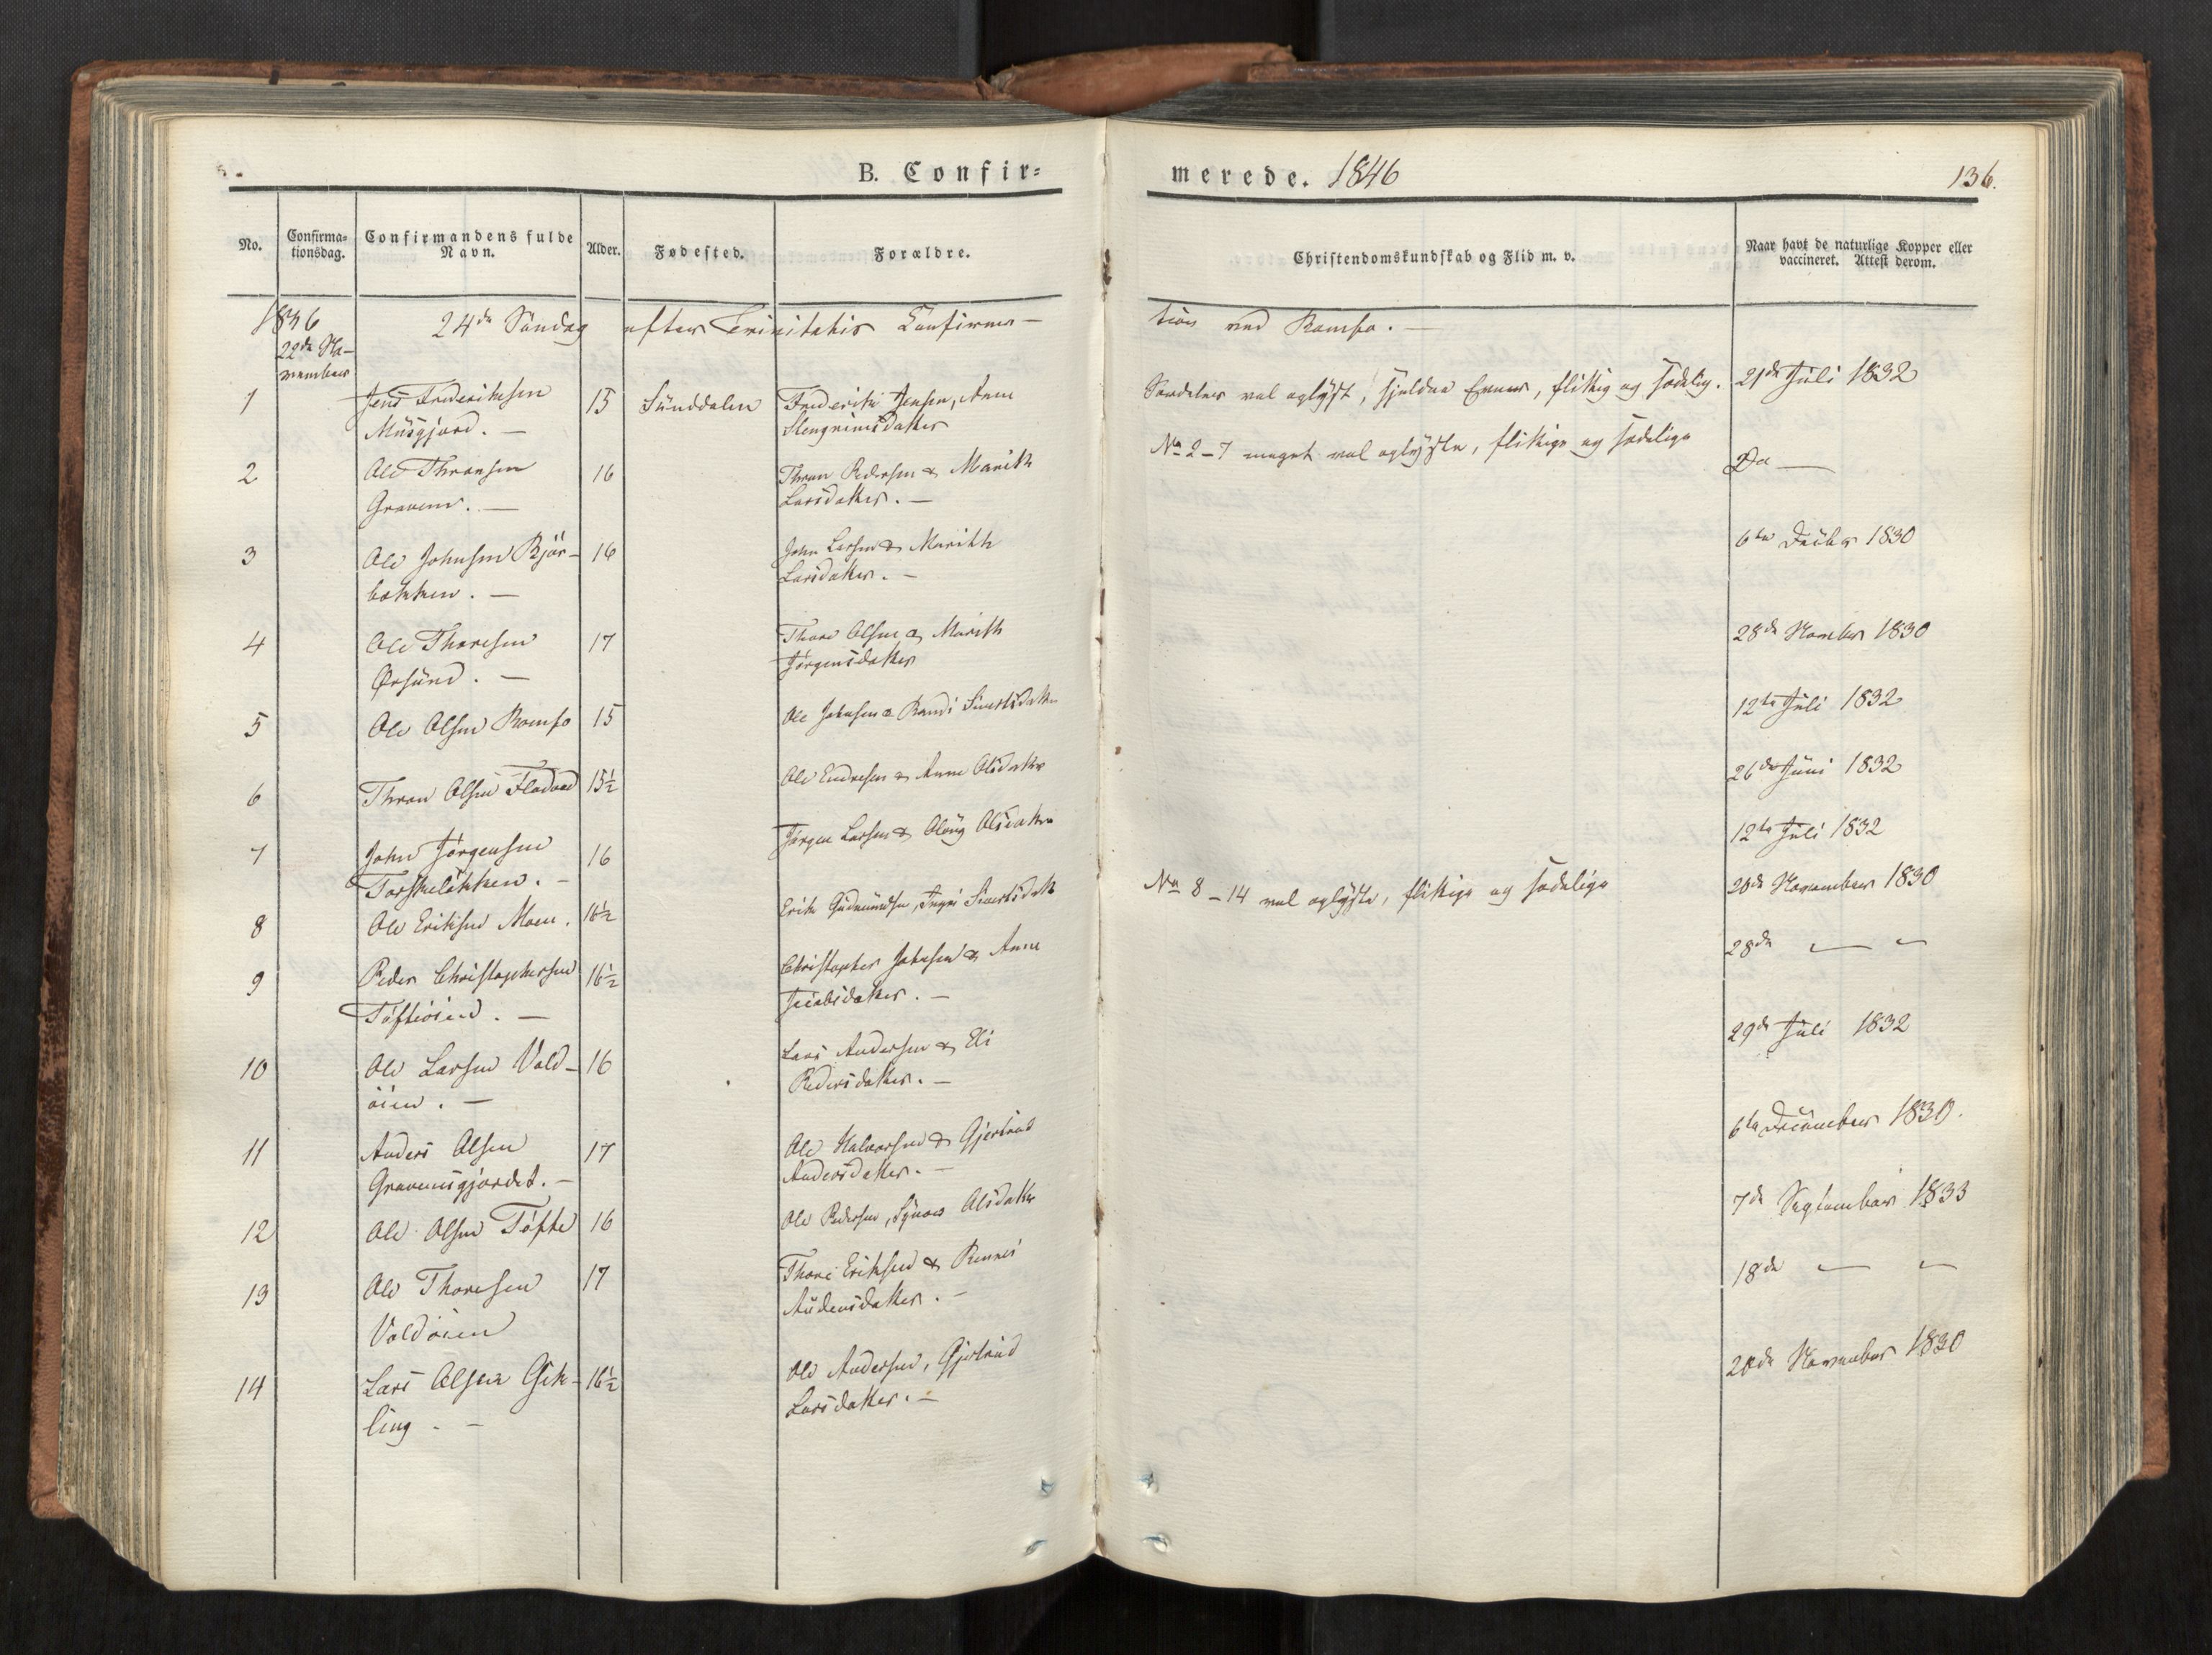 B. Confir=
merede. 1846
136.
No.
Confirma=
tionsdag.
Confirmandens fulde
Navn.
Alder.
Fødested.
Forældre.
Christendomskundskab og Flid m. v.
Naar havt de naturlige Kopper eller
vaccineret. Attest derom.
1846 24de Søndag efter Trinitatis Confirma-
tion ved Romfo. -
22de No-
vember
1 Jens Frederiksen 15 Sunddalen Frederik Jensen, Anne Særdeles vel oplyst, sjeldne Evner, flittig og sædelig. 21de Juli 1832
Musgjerd. - Stengrimsdatter
2 Ole Thronsen 16 Thron Pedersen & Marith No 2-7 meget vel oplyste, flittige og sædelige Do —
Gravem. - Larsdatter. -
3 Ole Johnsen Bjør- 16 John Larsen & Marith 6te Decbr 1830
bekken. - Larsdatter. -
4 Ole Thoresen 17 Thore Olsen & Marith 28de November 1830
Ørsund. - Jørgensdatter
5 Ole Olsen Romfo 15 Ole Johnsen & Randi Sivertsdatter 12te Juli 1832
6 Thron Olsen 15½ Ole Endresen & Anne Olsdatter 26de Juni 1832
7 John Jørgensen 16 Jørgen Larsen & Olsdatter 12te Juli 1832
Torskeløkken. -
8 Ole Eriksen Moen. 16½ Erik Gudmundsen, Ingri Sivertsdatt No 8-14 vel oplyste, flittige og sædelige 20de November 1830
9 Peder Christophersen 16½ Christopher Johnsen & Anne 28de — -
Tøftiøien. - Jacobsdatter. -
10 Ole Larsen Vold- 16 Lars Andersen & Eli 29de Juli 1832
øien. - Pedersdatter. -
11 Anders Olsen 17 Ole Halvorsen & Gjertrud 6te December 1830.
Gravemsgjerdet. - Andersdatter. -
12 Ole Olsen Tøfte 16 Ole Pedersen, Synnø Olsdatter 7de September 1833
13 Ole Thoresen 17 Thore Eriksen & 18de — -
Voldøien Audensdatter. -
14 Lars Olsen Gik- 16½ Ole Andersen, Gjertrud November 1830
ling. - Larsdatter. -